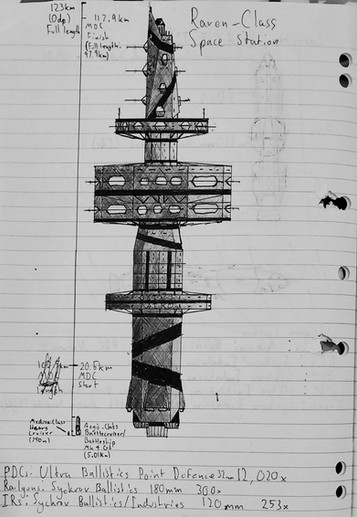 123km
(0dp)
Full length
117.9km
MDC
Finish
(Full length:
97.9km)
Raven-Class
Space Station
20.6km
MDC
Start
Length
Medusa Class
Heavy
Cruiser
(740m)
Aegis-Class
Battlecruiser/
Battleship
(5.01km)
PDCs: Ultra Ballistics Point Defence 12,020x
Railguns: Syckrov Ballistics 180mm 300x
IRS: Syckrov Ballistics/Industries 120mm 253x